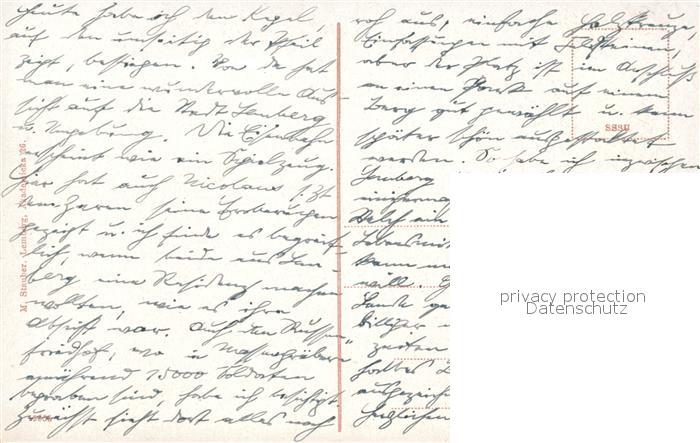 Heute habe ich den Kegel
auf den umseitig der Pfeil
zeigt, bestiegen. Von da hat
man eine wundervolle Aus-
sicht auf die Stadt Lemberg
u. Umgebung. Die Eisenbahn
erscheint wie ein Spielzeug.
Hier hat auch Nicolaus
dem Zaren seine Eroberungen
gezeigt u. ich finde es begreif-
lich, wenn beide aus Lem-
berg eine Residenz machen
wollten, wie es ihre
Absicht war. Auch den Russen-
friedhof, wo in Massengräbern
ungefähr 15000 Soldaten
begraben sind, habe ich besichtigt.
Zunächst sieht dort alles noch
roh aus, einfache Holzkreuze,
Einfassungen mit Feldsteinen,
aber der Platz ist im Anschluß
an einen Park auf einem
Berg gut gewählt u. kann
später schön ausgestaltet
werden. So habe ich inzwischen
Lemberg
Welch ein
Lebensmit
kann
will.
Lande ge
billiger
zeiten
halbes
ausgezeich
Herzlichen
M. Stauber, Lemberg, Akademicka 26.
SS3II
privacy protection
Datenschutz